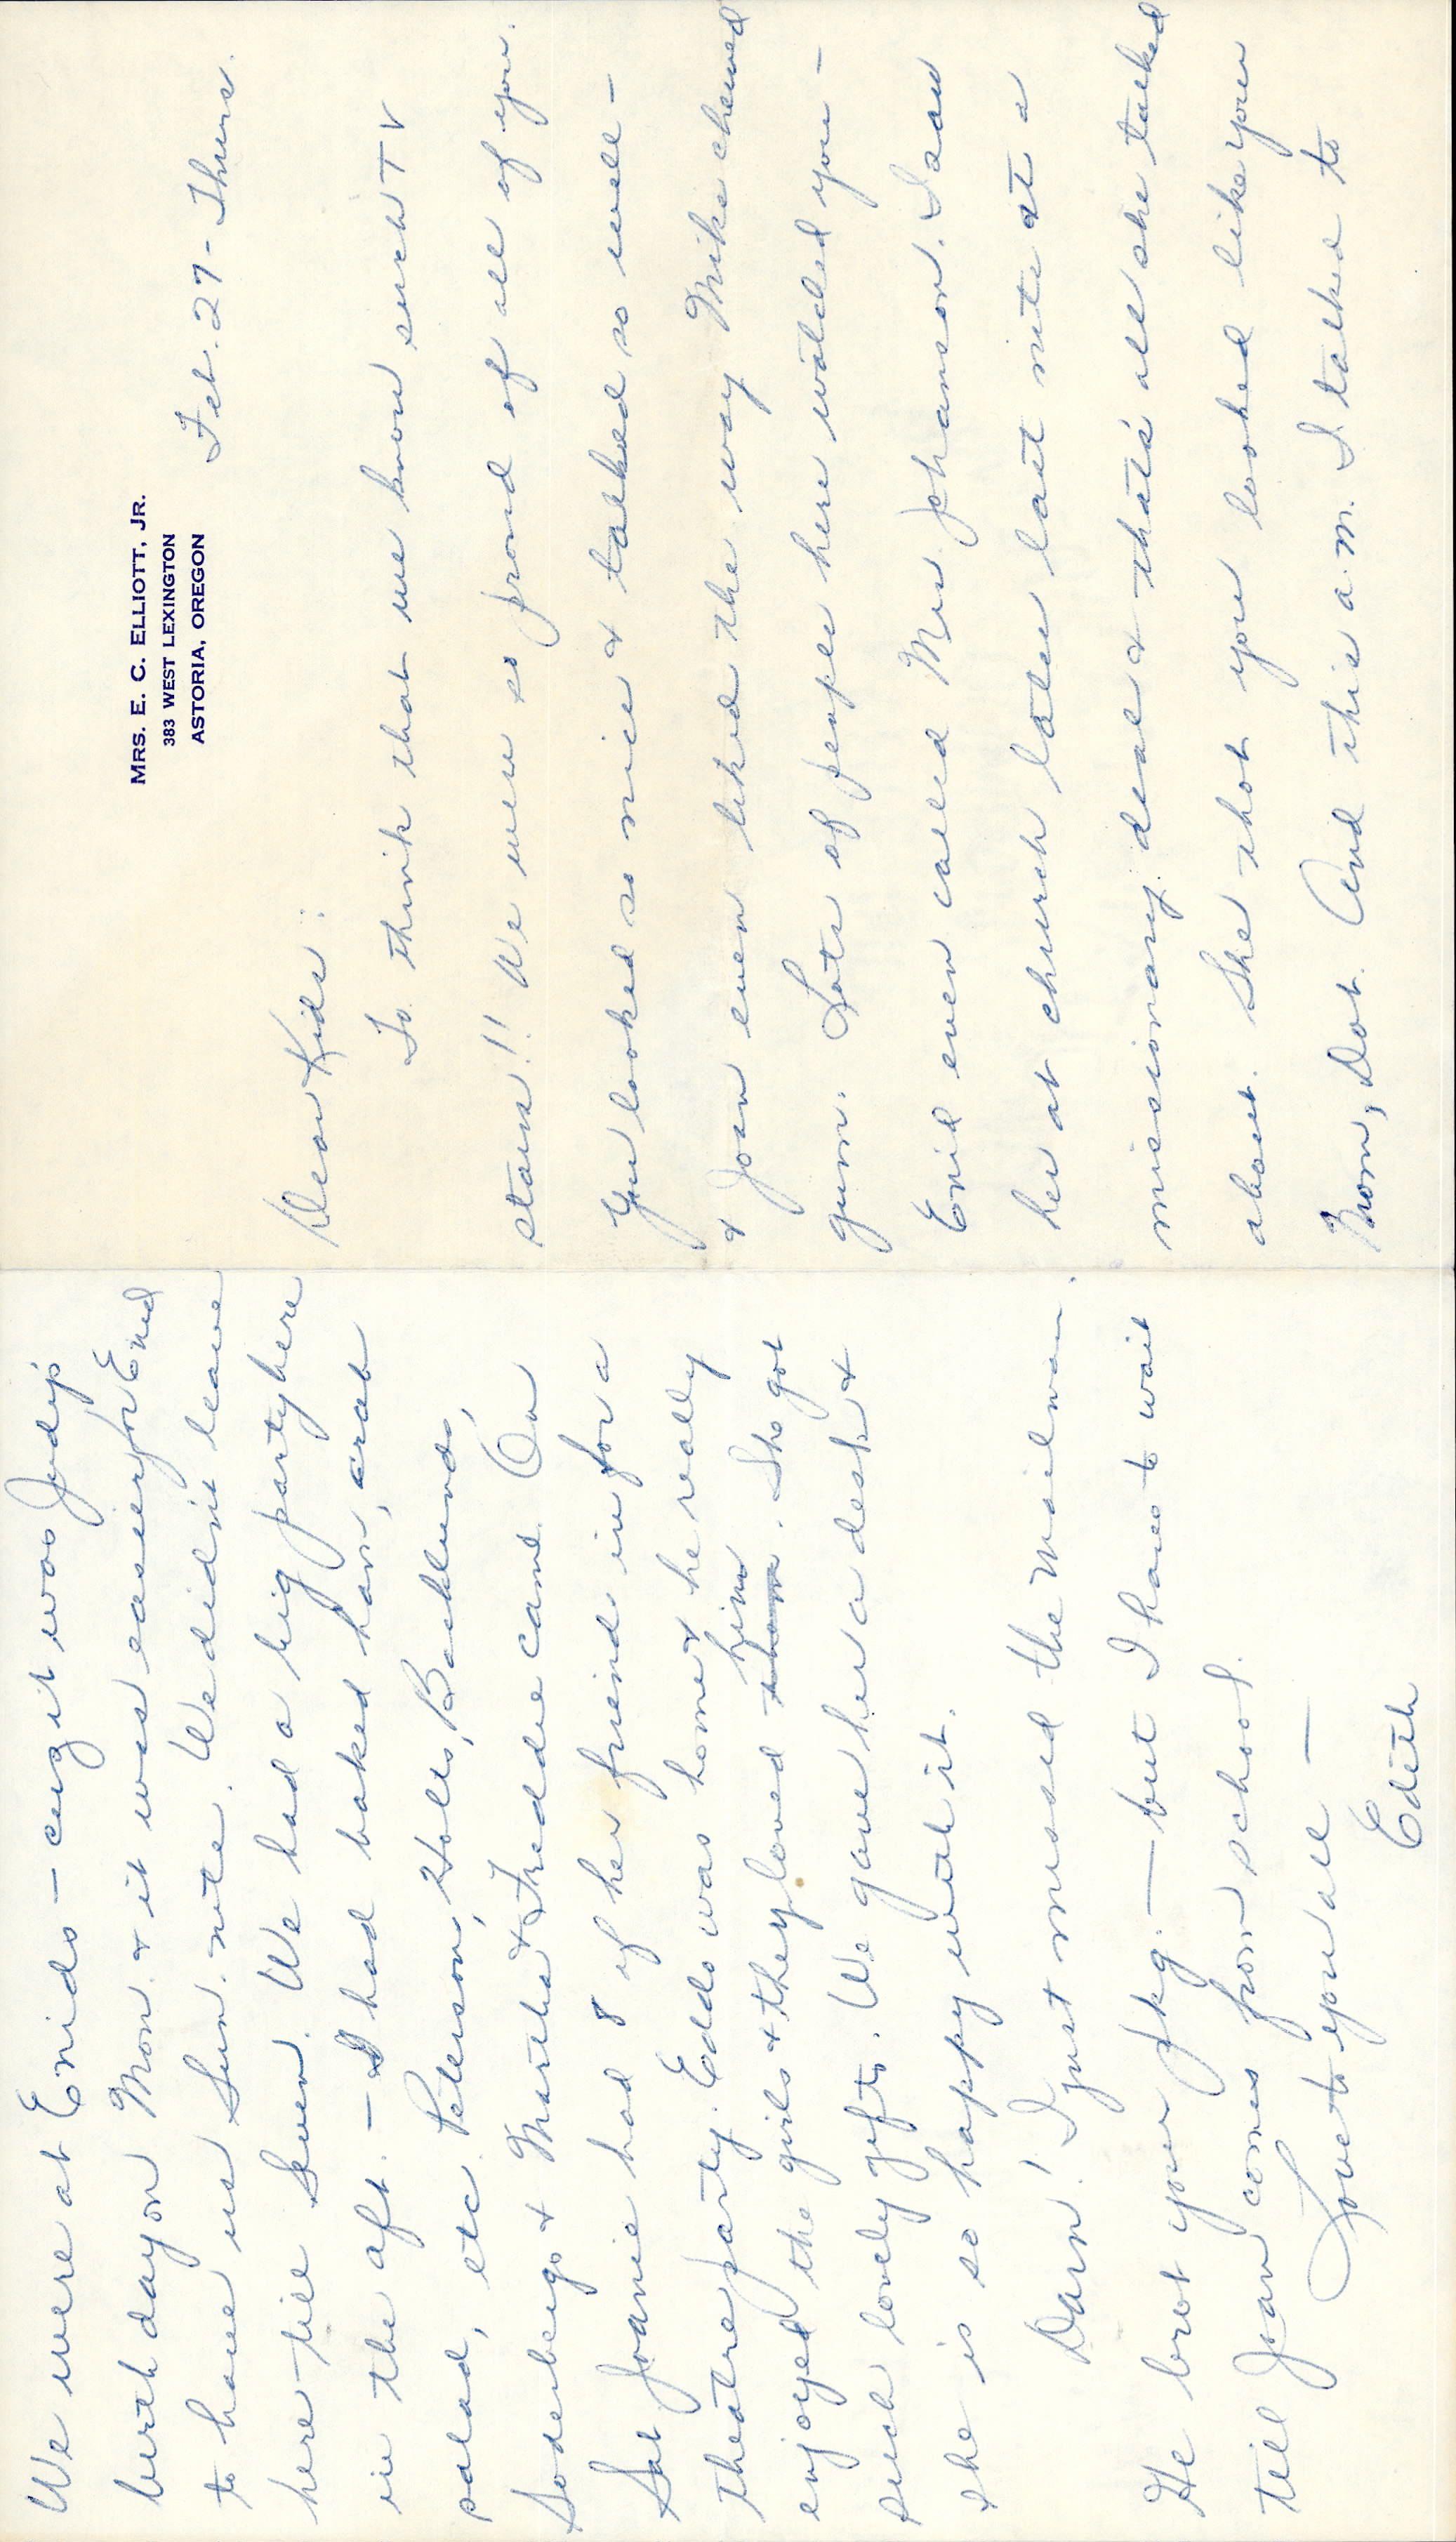 MRS. E. C. ELLIOTT, JR.
383 WEST LEXINGTON
ASTORIA, OREGON
Feb. 27 - Thurs.
Dear Kids:
To think that we know such TV
stars!! We were so proud of all of you.
You looked so nice & talked so well -
& Joan even liked the way Mike chewed
gum. Lots of people here watched you -
Enid even called Mrs Johanson. I saw
her at church later last nite at a
missionary deal & that's all she talked
about. She thot you looked like your
Mom, Dot. And this a.m. I talked to
We were at Enids - cuz it was Judy's
birthday on Mon. & it was easier for Enid
to have us Sun. nite. We didnt leave
here till seven. We had a big party here
in the aft. - I had baked ham, crab
salad, etc. Petersons, Holls, Backlunds,
Soderbergs & Martha & Freddie came. On
Sat Joanie had 8 of her friends in for a
theatre party. Eddo was home & he really
enjoyed the girls & they loved him. She got
such lovely gifts. We gave her a desk &
she is so happy with it.
Darn! I just missed the mailman.
He brot your pkg. - but I have to wait
till Joan comes from school.
Love to you all -
Edith